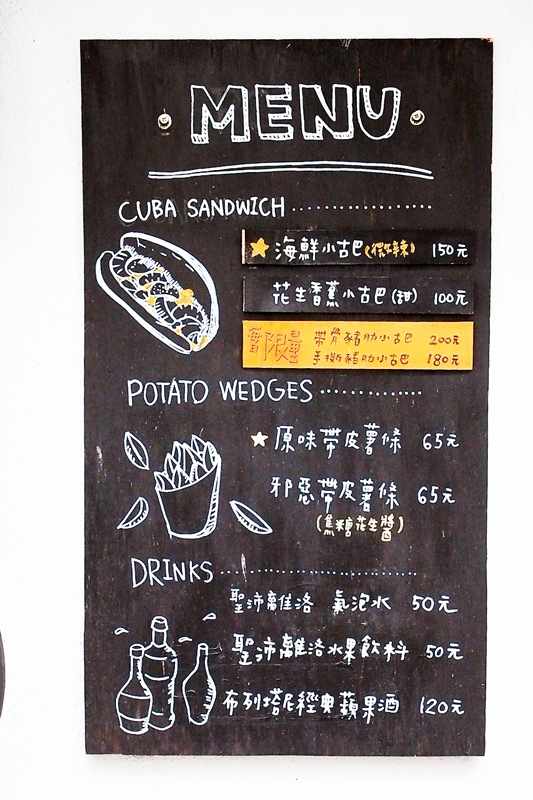 MENU
CUBA SANDWICH
海鮮小古巴(微辣) 150元
花生香蕉小古巴(甜) 100元
限量
帶骨豬肋小古巴 200元
手撕豬肋小古巴 180元
POTATO WEDGES
原味帶皮薯條 65元
邪惡帶皮薯條 65元
(焦糖花生醬)
DRINKS
聖沛離洛 氣泡水 50元
聖沛離洛水果飲料 50元
布列塔尼經典蘋果酒 120元